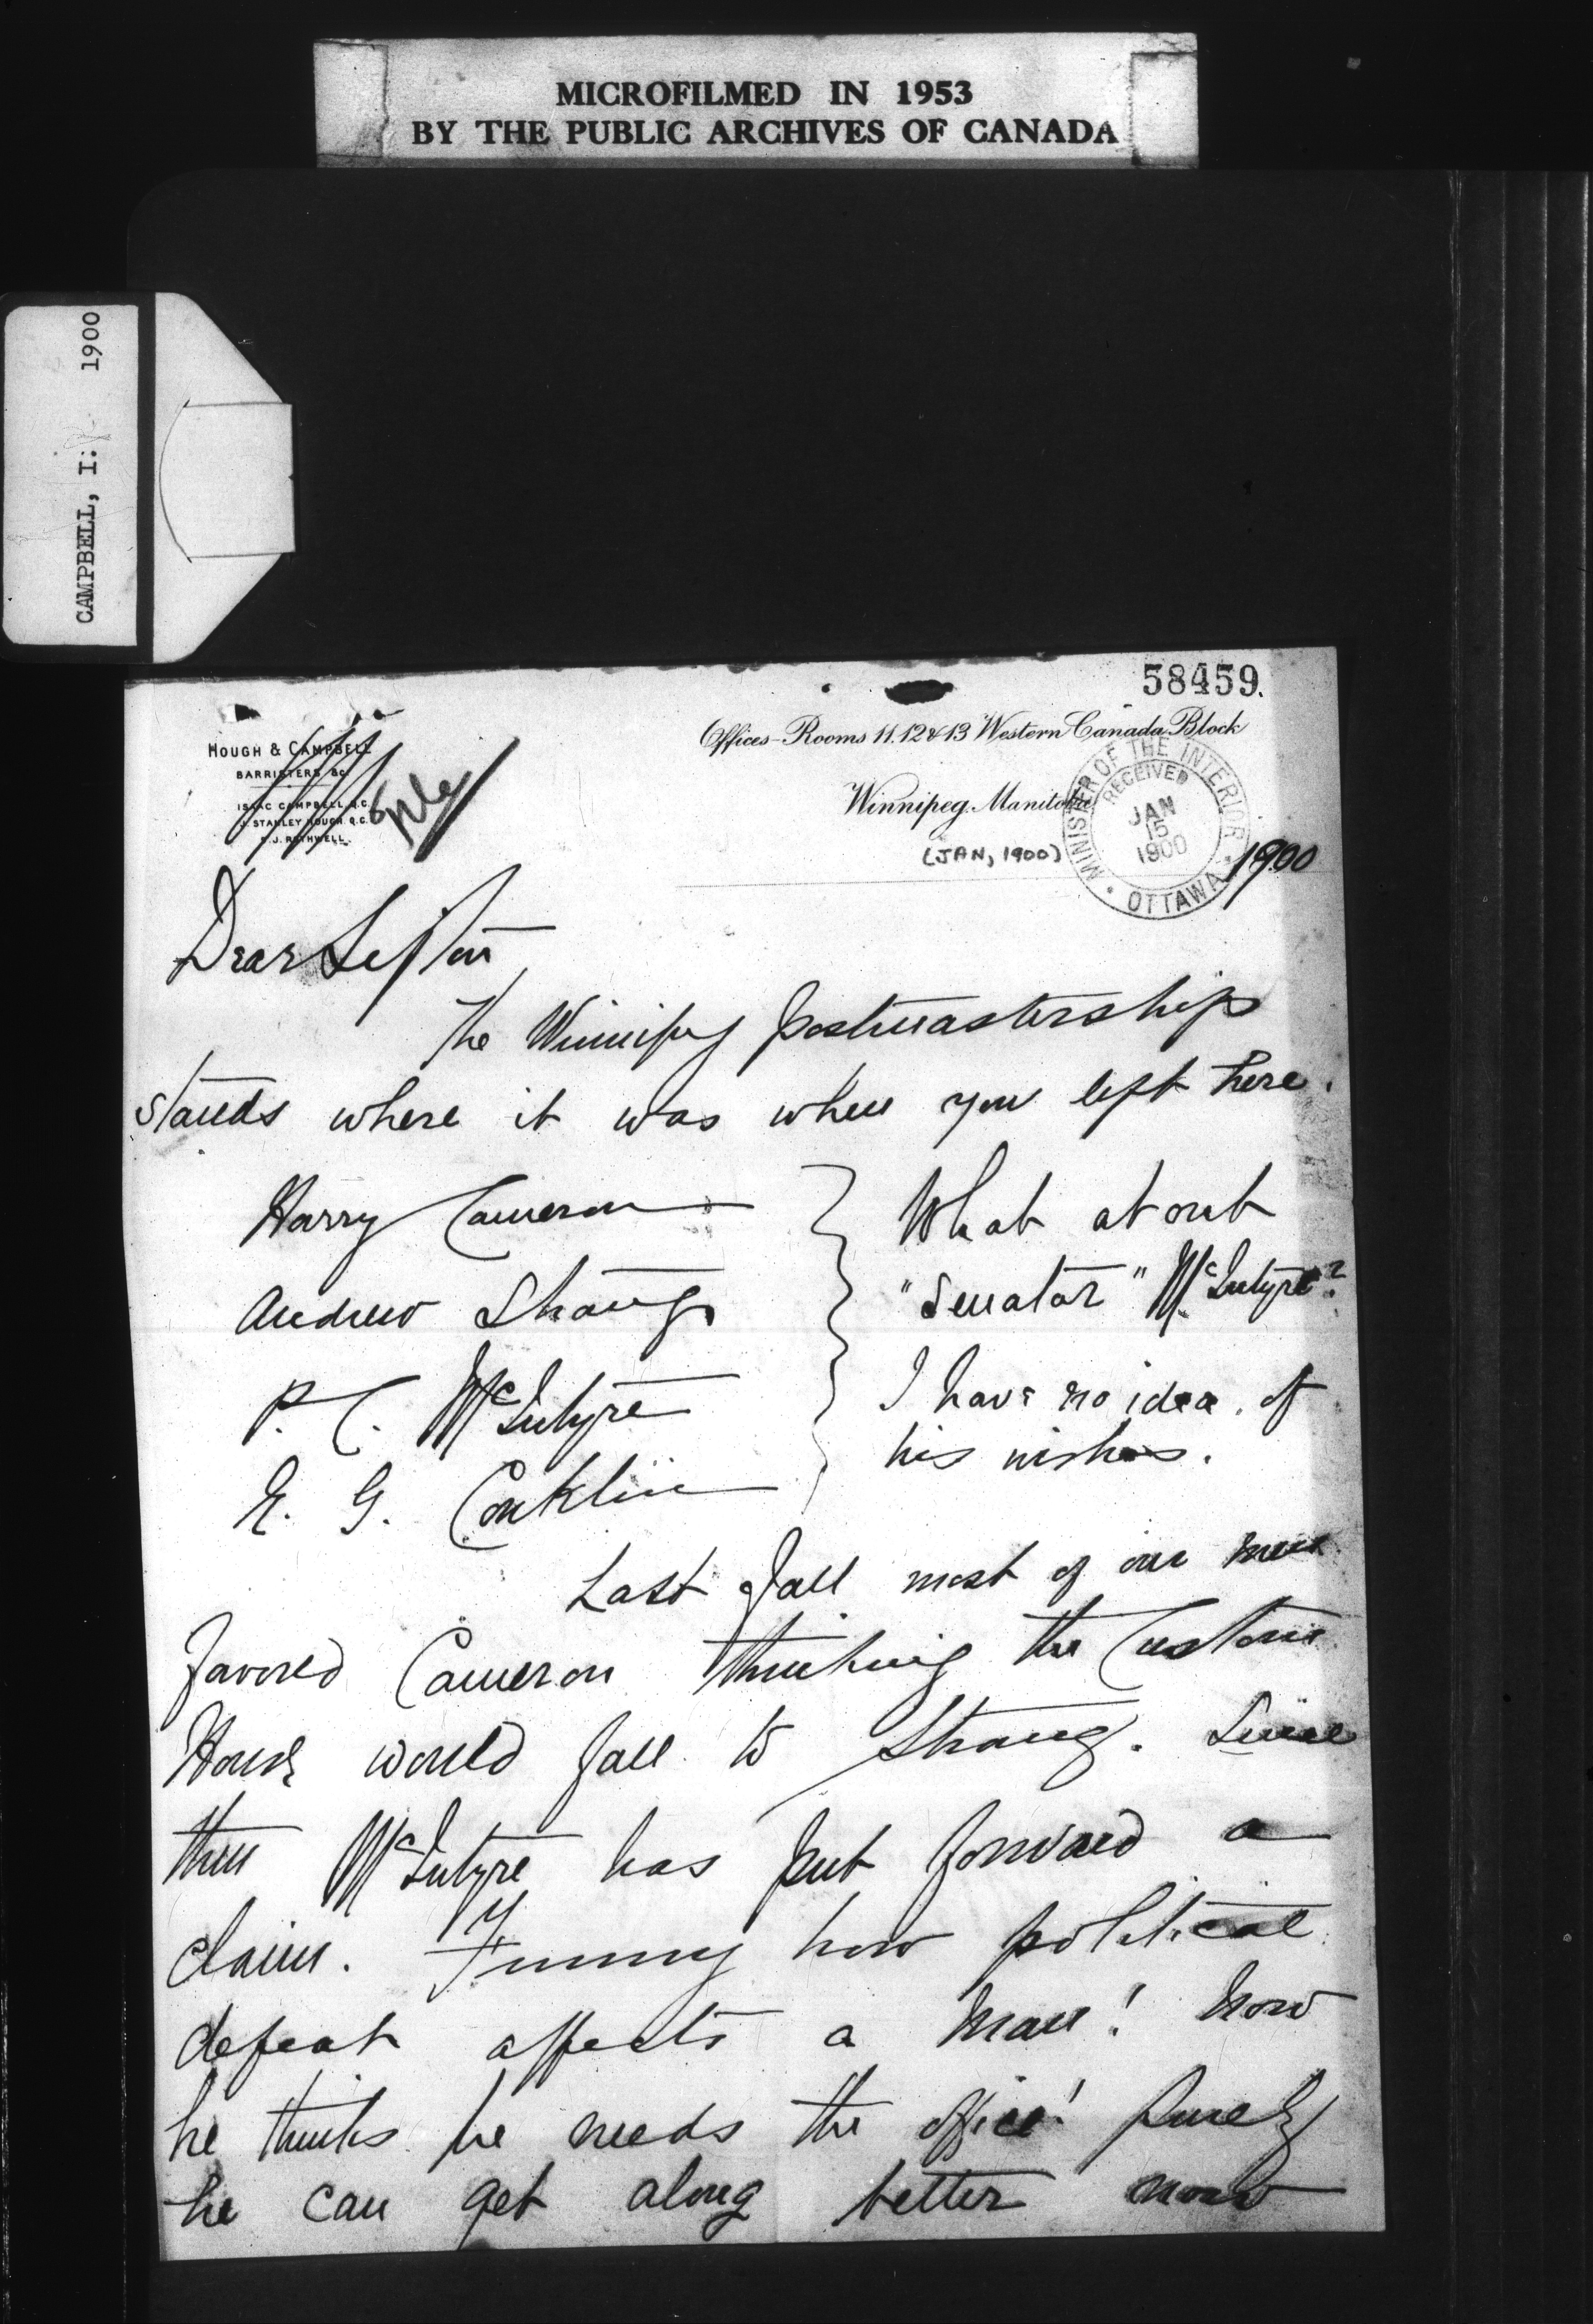 MICROFILMED IN 1953
BY THE PUBLIC ARCHIVES OF CANADA
CAMPBELL, I. 1900
58459.
HOUGH & CAMPBELL
BARRISTERS &c
ISAAC CAMPBELL, Q.C.
J. STANLEY HOUGH, Q.C.
ROTHWELL.
Offices-Rooms 11.12 & 13 Western Canada Block
Winnipeg. Manitoba
(JAN, 1900)
1900
MINISTER OF THE INTERIOR
RECEIVED
JAN
15
1900
OTTAWA
Dear Sifton
The Winnipeg postmastership
stands where it was when you left here.
Harry Cameron
Andrew Strang
P. C. McIntyre
E. G. Conklin
What about
"Senator" McIntyre?
I have no idea of
his wishes.
Last fall most of our men
favored Cameron thinking the Customs
House would fall to Strang. Since
then McIntyre has put forward a
claim. Funny how political
defeat affects a man! Now
he thinks he needs the office! Surely
he can get along better now